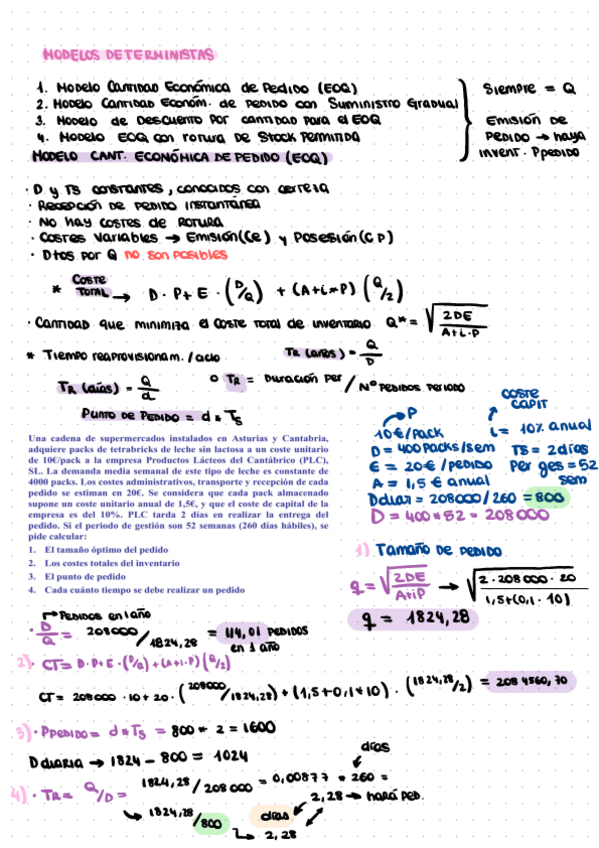 MODELOS DETERMINISTAS
1. Modelo Cantidad Económica de Pedido (EOQ)
2. Modelo Cantidad Económ. de pedido con Suministro Gradual
3. Modelo de Descuento por cantidad para el EOQ
4. Modelo EOQ con rotura de Stock Permitida
Siempre = Q
Emisión de
Pedido → haya
invent. Ppedido
MODELO CANT. ECONÓMICA DE PEDIDO (EOQ)
· D y TS constantes, conocidos con certeza
· Recepción de pedido instantánea
· No hay costes de rotura
· Costes variables → Emisión (Ce) y Posesión (CP)
· Dtos por Q no son posibles
* Coste Total → D · P + E · (D/Q) + (A+i*P) (Q/2)
· Cantidad que minimiza el coste total de inventario Q* = √2DE / A+i·P
* Tiempo reaprovisionam. / ciclo
TR (años) = Q/D
TR (días) = Q/d
o TR = Duración Per / Nº Pedidos periodo
Punto de Pedido = d * Ts
Una cadena de supermercados instalados en Asturias y Cantabria,
adquiere packs de tetrabricks de leche sin lactosa a un coste unitario
de 10€/pack a la empresa Productos Lácteos del Cantábrico (PLC),
SL.. La demanda media semanal de este tipo de leche es constante de
4000 packs. Los costes administrativos, transporte y recepción de cada
pedido se estiman en 20€. Se considera que cada pack almacenado
supone un coste unitario anual de 1,5€, y que el coste de capital de la
empresa es del 10%. PLC tarda 2 días en realizar la entrega del
pedido. Si el periodo de gestión son 52 semanas (260 días hábiles), se
pide calcular:
1. El tamaño óptimo del pedido
2. Los costes totales del inventario
3. El punto de pedido
4. Cada cuánto tiempo se debe realizar un pedido
P
coste
capit
10€/pack
i = 10% anual
D = 400 packs/sem
TS = 2 días
E = 20€/pedido
Per ges = 52
sem
A = 1,5 € anual
D diar = 208000/260 = 800
D = 400*52 = 208000
1) Tamaño de pedido
q = √2DE / A+iP → √2·208000·20 / 1,5+(0,1·10)
q = 1824,28
Pedidos en 1 año
· D/Q = 208000/1824,28 = 114,01 pedidos
en 1 año
2)· CT = D·P+E·(D/Q)+(A+i·P)(Q/2)
CT = 208000 · 10 + 20 · (208000/1824,28) + (1,5+0,1*10) · (1824,28/2) = 2084560,70
3)· Ppedido = d*Ts = 800 * 2 = 1600
D diaria → 1824 - 800 = 1024
días
4)· TR = Q/D = 1824,28/208000 = 0,00877 * 260 =
2,28 → hará ped.
1824,28/800
días
2,28